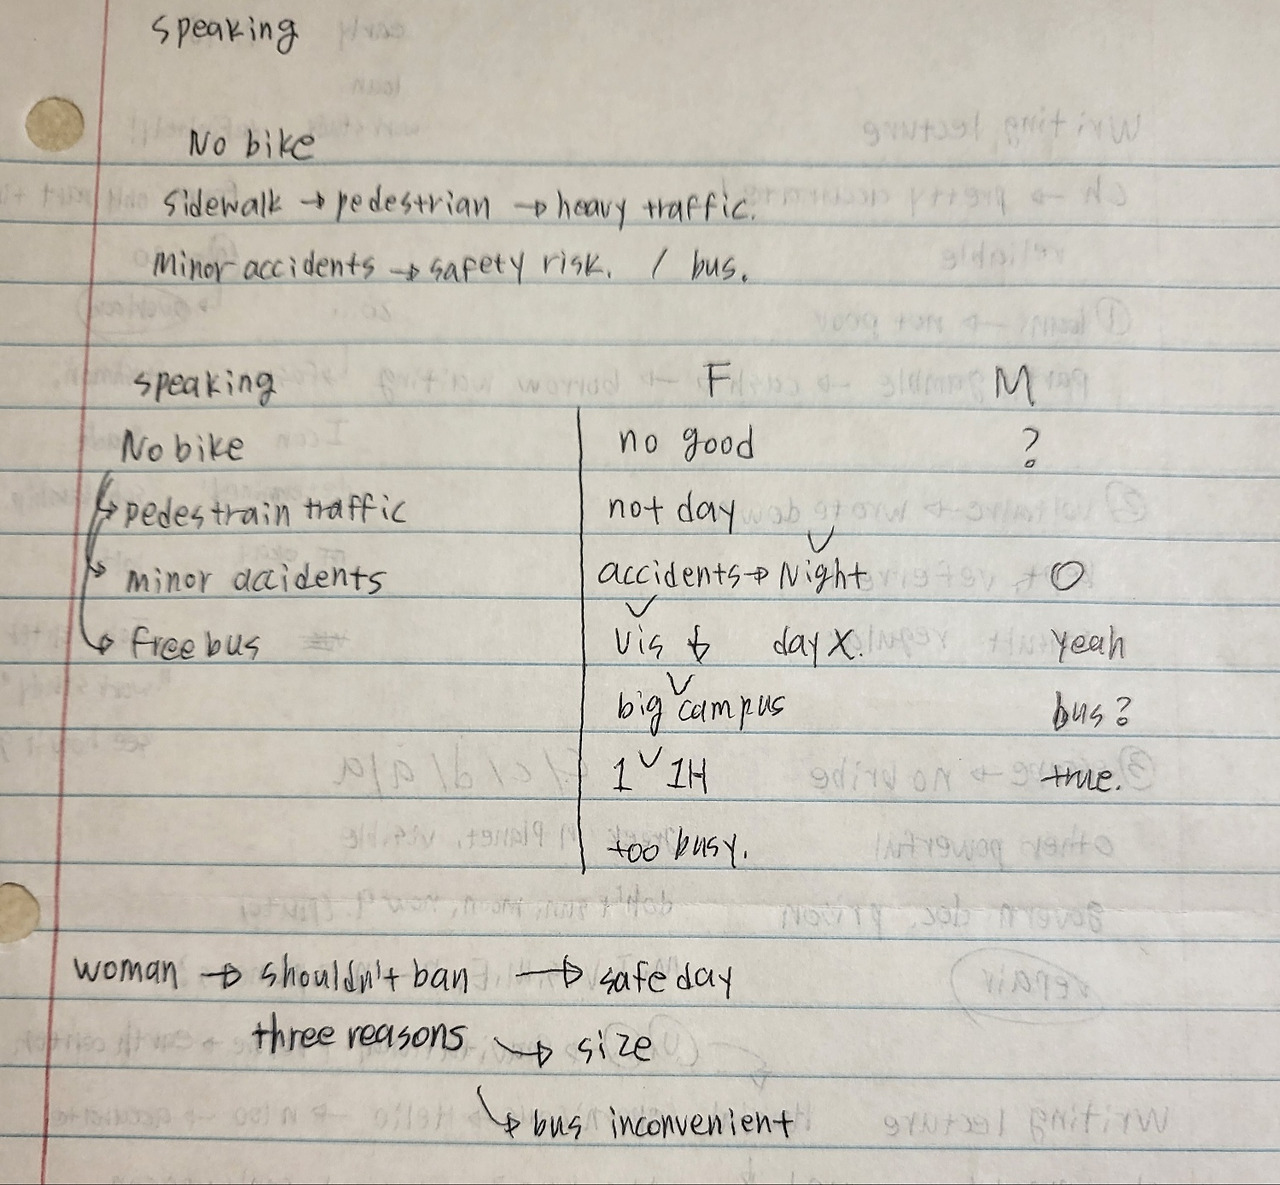 speaking
No bike
sidewalk → pedestrian → heavy traffic.
Minor accidents → safety risk. / bus.
speaking F M
No bike no good ?
pedestrain traffic not day
minor accidents accidents → Night O
free bus vis day X. yeah
big campus bus?
1 1H true.
too busy.
woman → shouldn't ban → safe day
three reasons → size
→ bus inconvenient